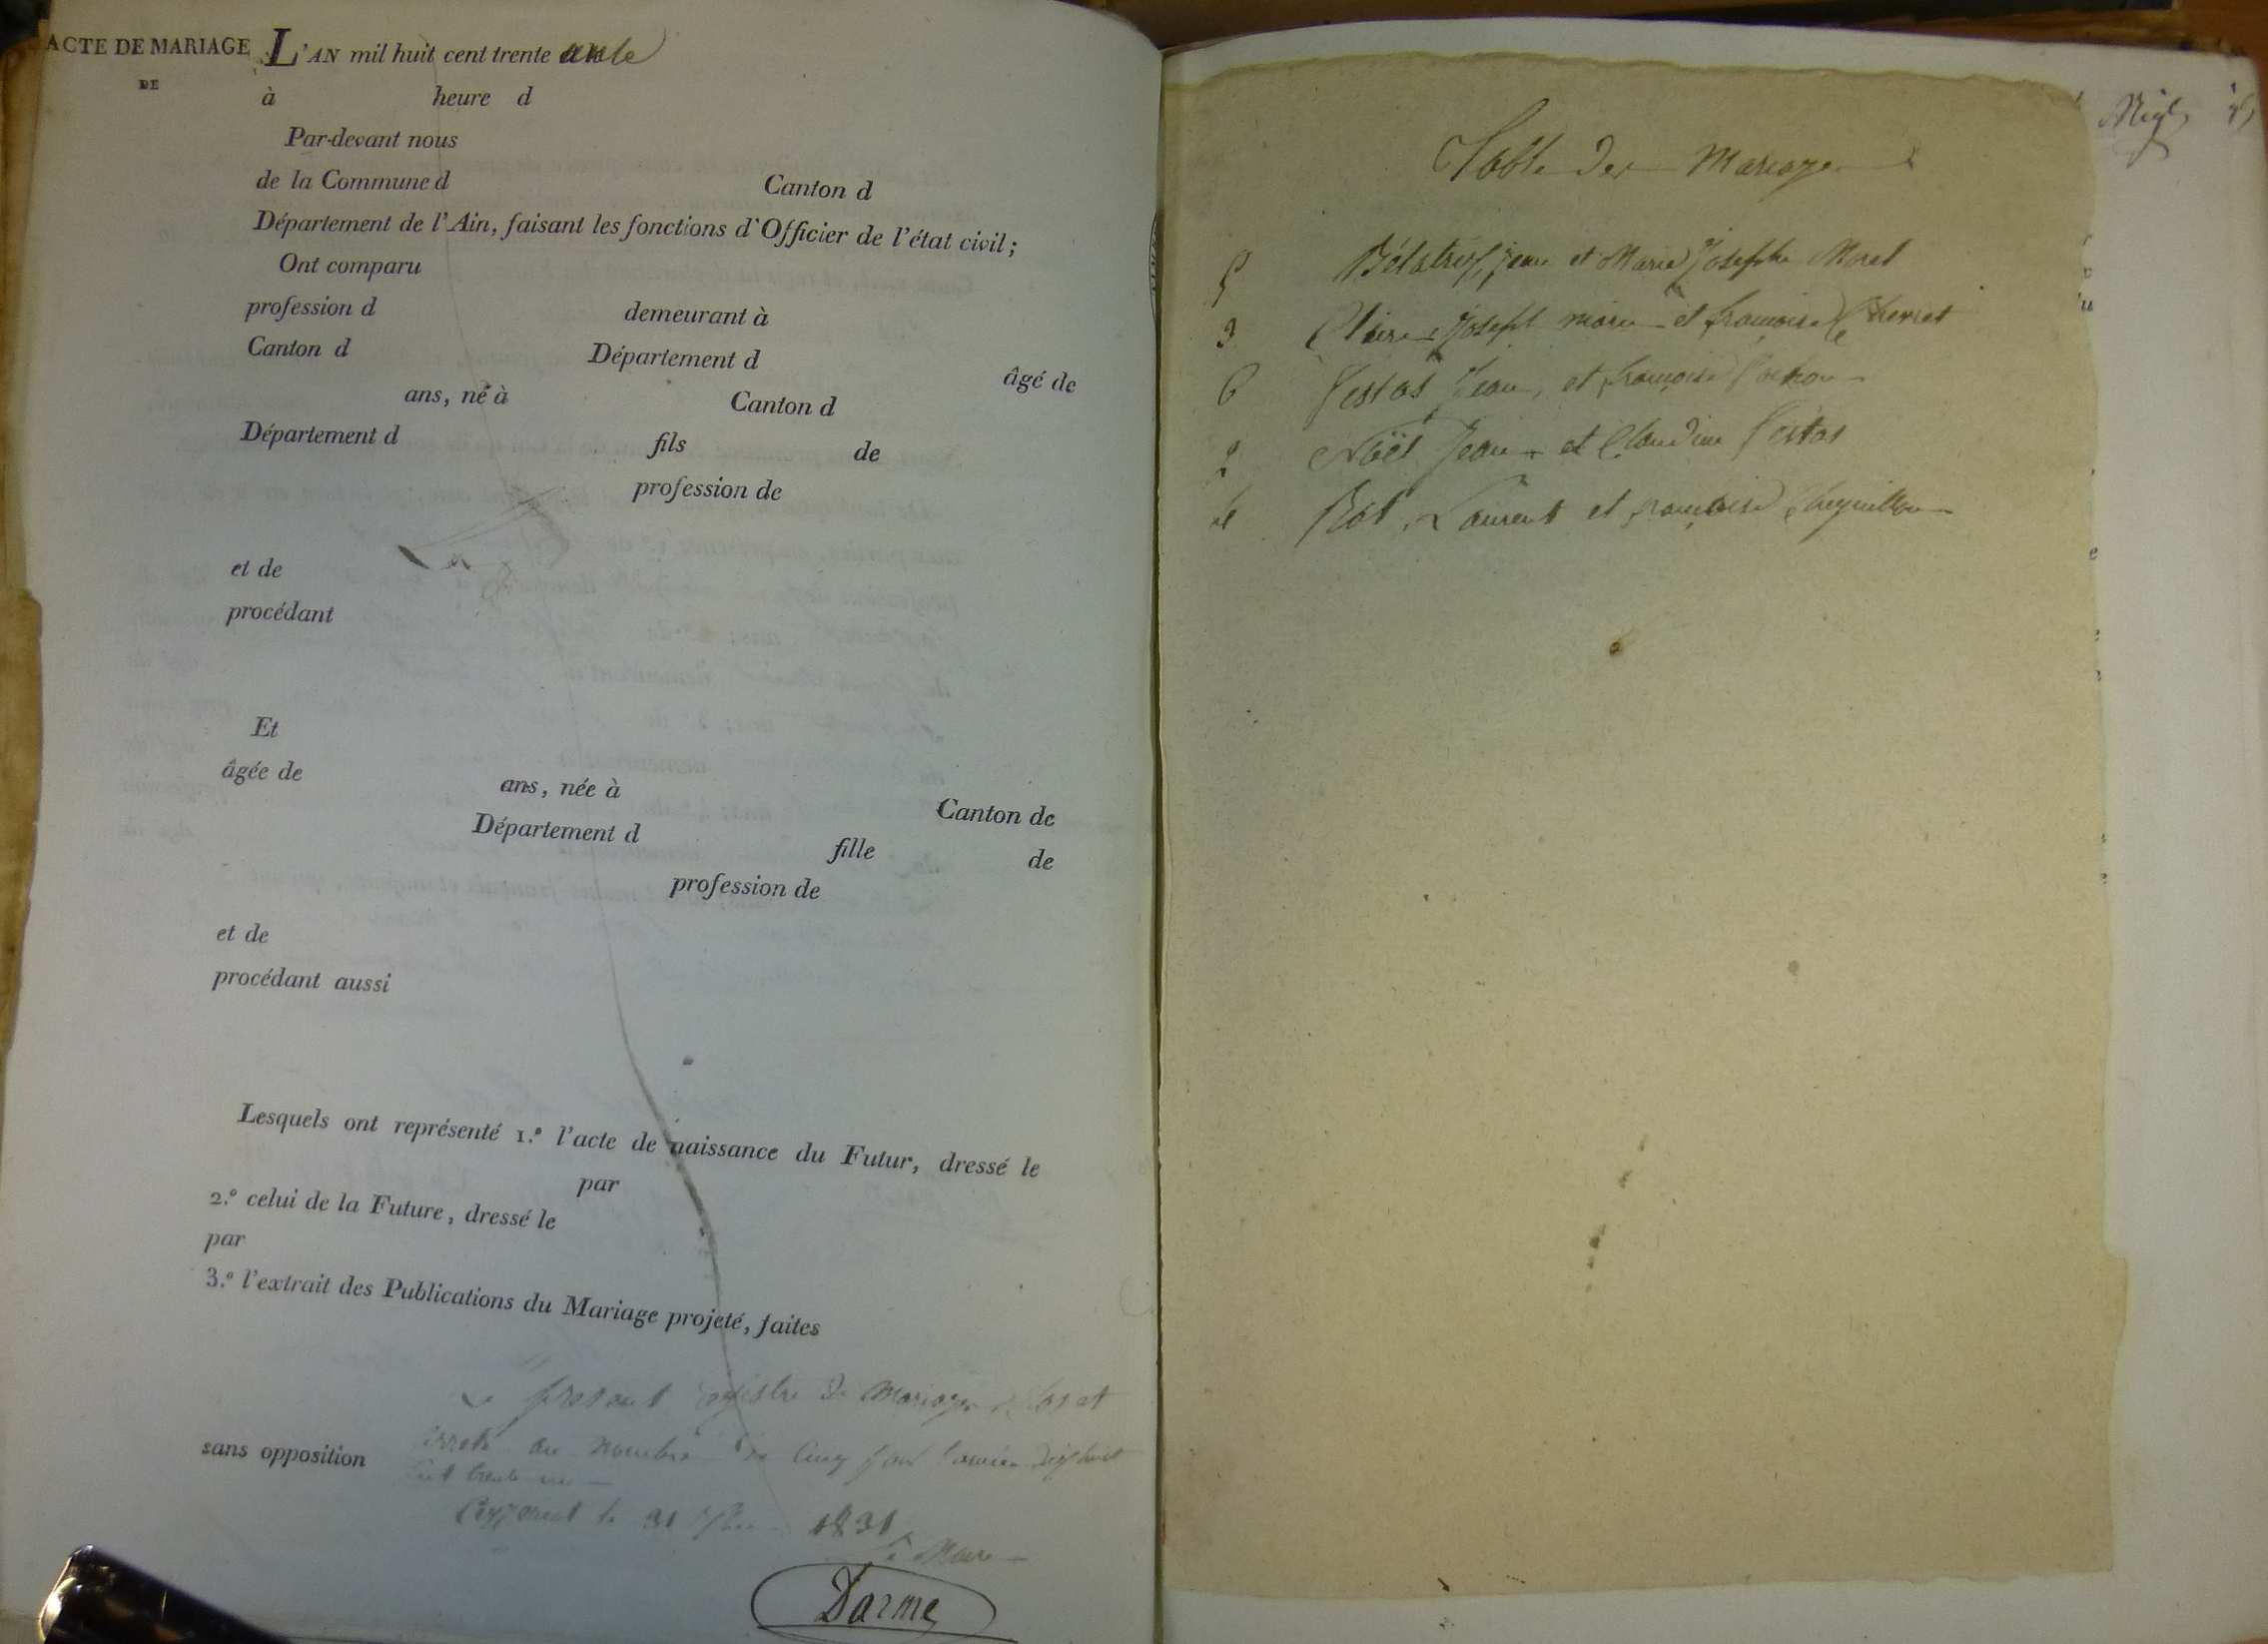 ACTE DE MARIAGE
DE
L'AN mil huit cent trente
à heure d
Par-devant nous
de la Commune d Canton d
Département de l'Ain, faisant les fonctions d'Officier de l'état civil;
Ont comparu
profession d demeurant à
Canton d Département d âgé de
ans, né à Canton d
Département d fils de
profession de
et de
procédant
Et
âgée de ans, née à Canton de
Département d fille de
profession de
et de
procédant aussi
Lesquels ont représenté 1.° l'acte de naissance du Futur, dressé le
par
2.° celui de la Future, dressé le
par
3.° l'extrait des Publications du Mariage projeté, faites
Le présent registre de Mariages clos et
sans opposition
arrêté au nombre de cinq pour l'année dix huit
cent trente un
le 31 1831
Le Maire
Darme
Table des Mariages
5 Jean et Marie Josephe Morel
3 Claire Joseph marie et françoise
6 Jean, et françoise
2 Noël Jean et Claudine
4 Rot Laurent et françoise